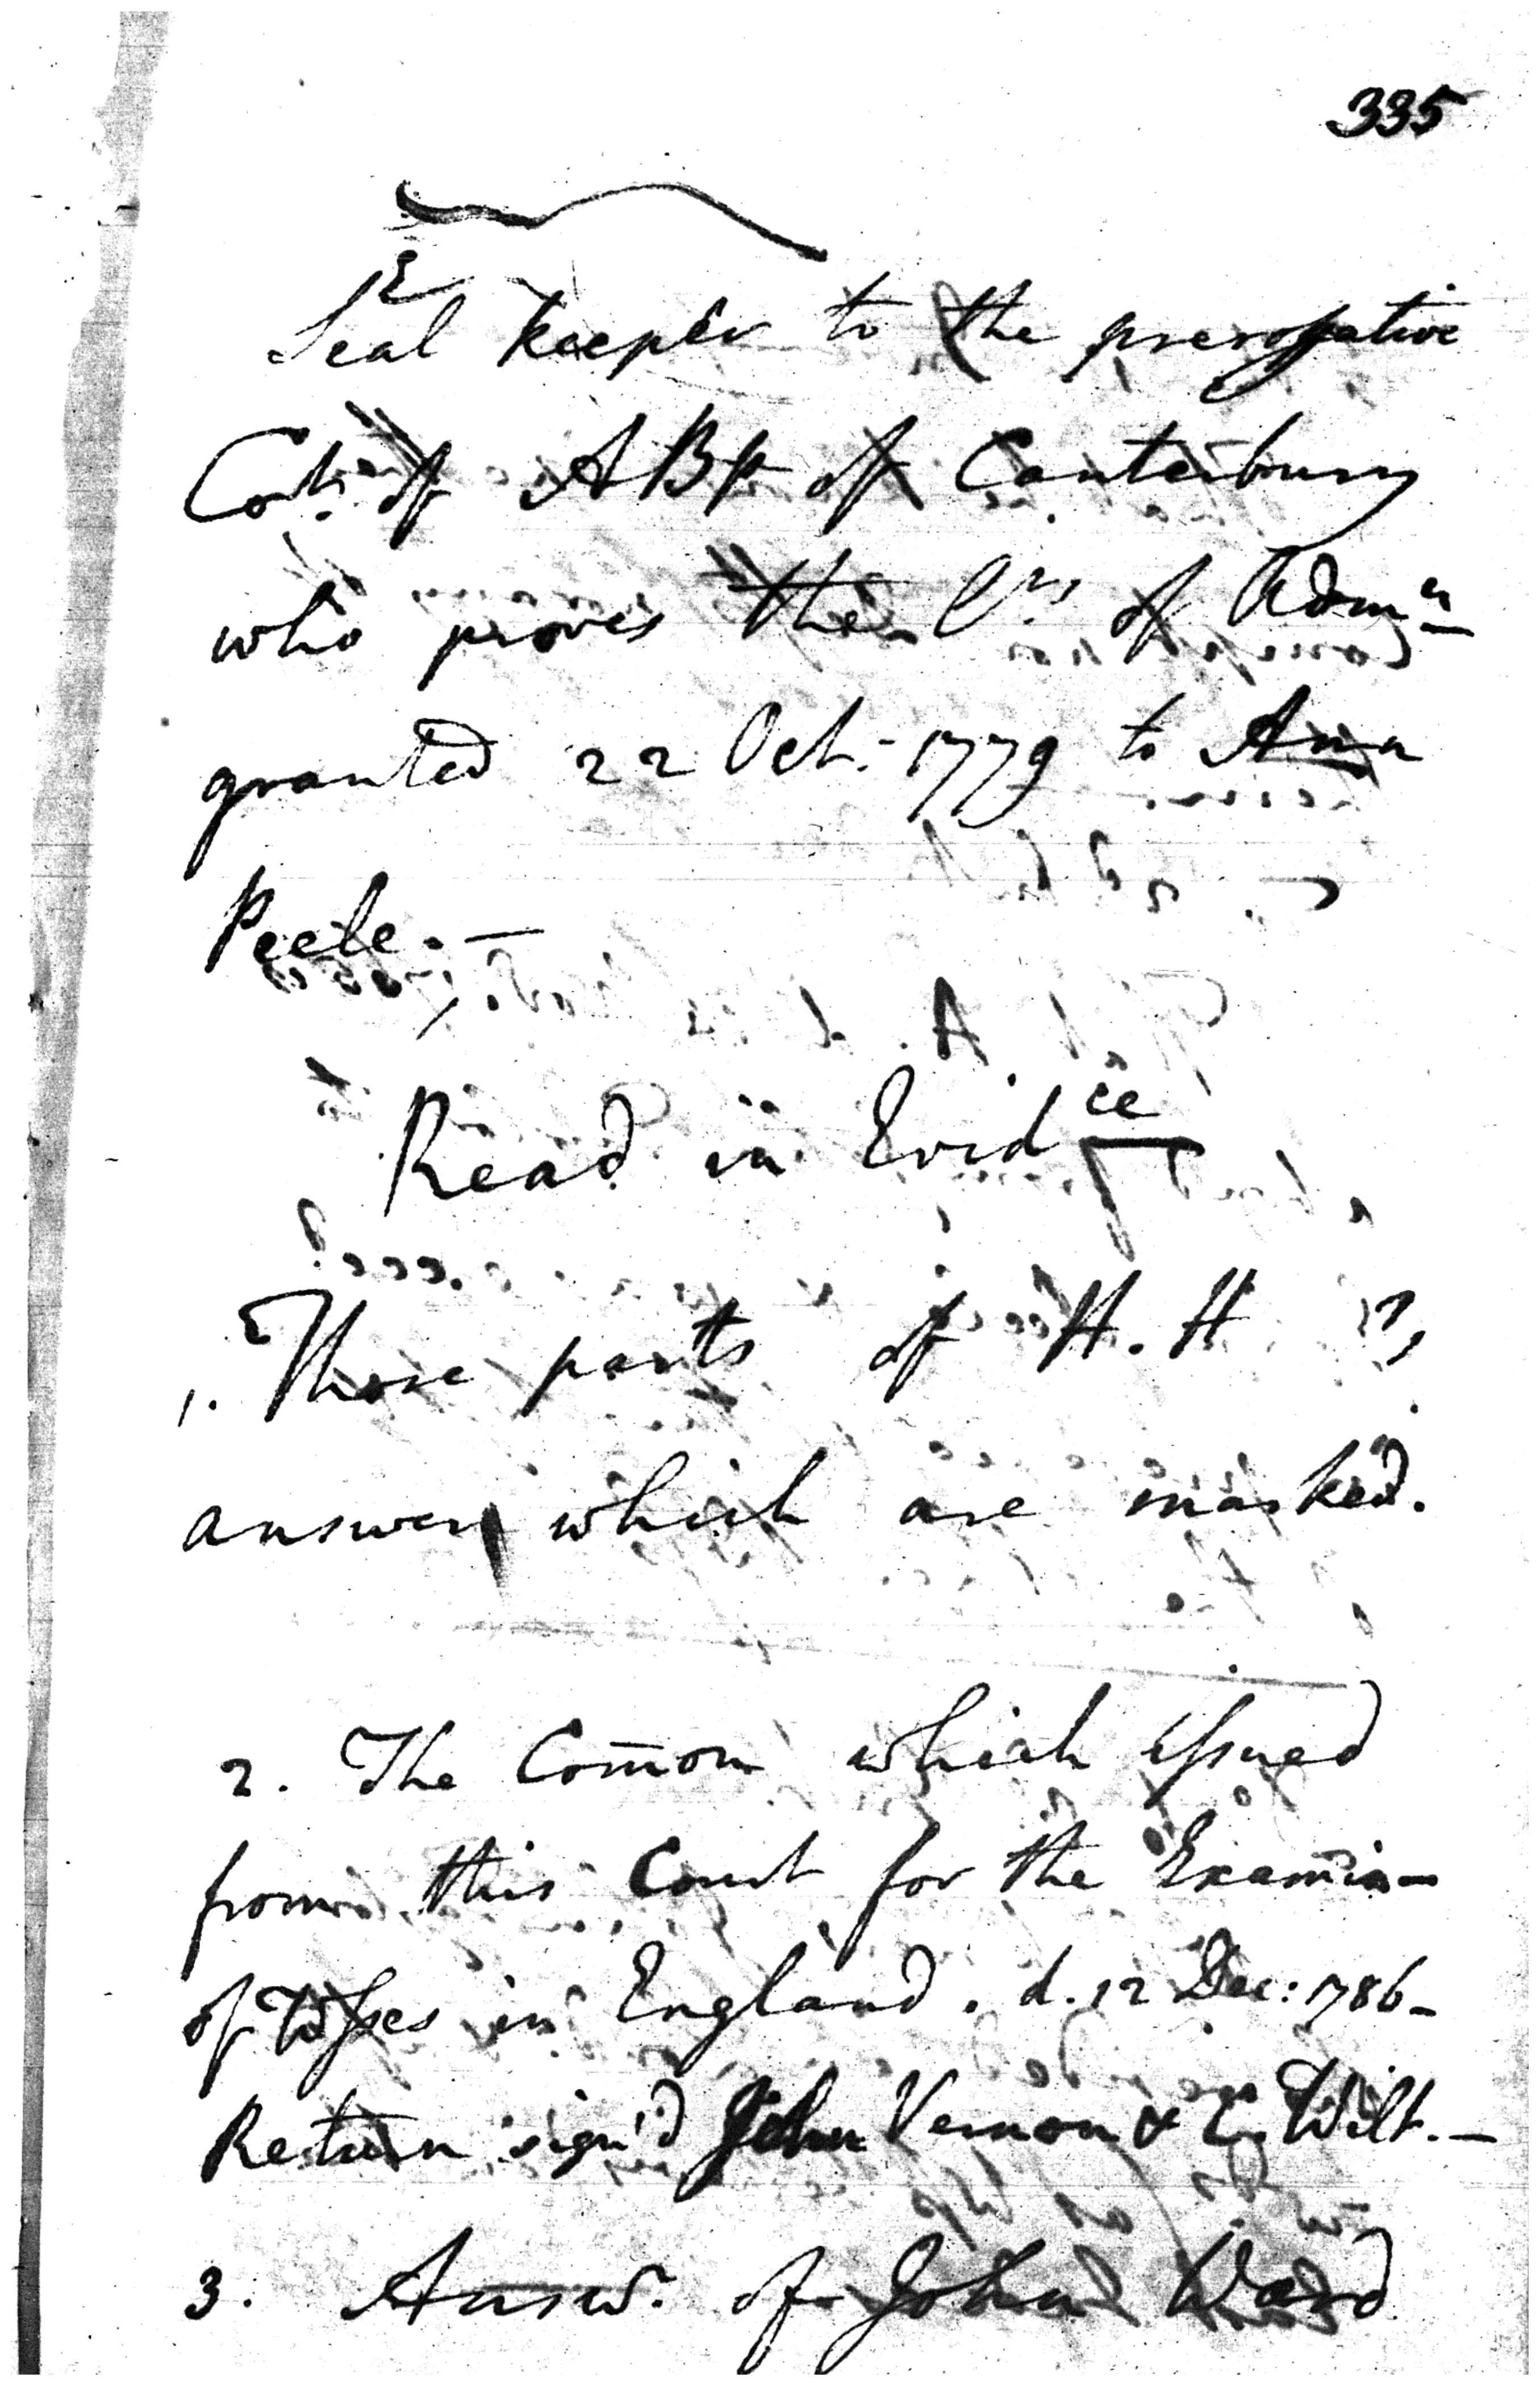 335
Seal keeper to the prerogative
Cot: of ABp of Canterbury
who proves the of Admn
granted 22 Oct: 1779 to Ann
Peele. —
Read in Evidce
1. Those parts of H. H
answer which are marked.
2. The Comōn which issued
from this Court for the Examin—
of Wsses in England. d. 12 Dec: 1786—
Return sign'd John Vernon & C. Wilt. —
3. Answr. of John Ward